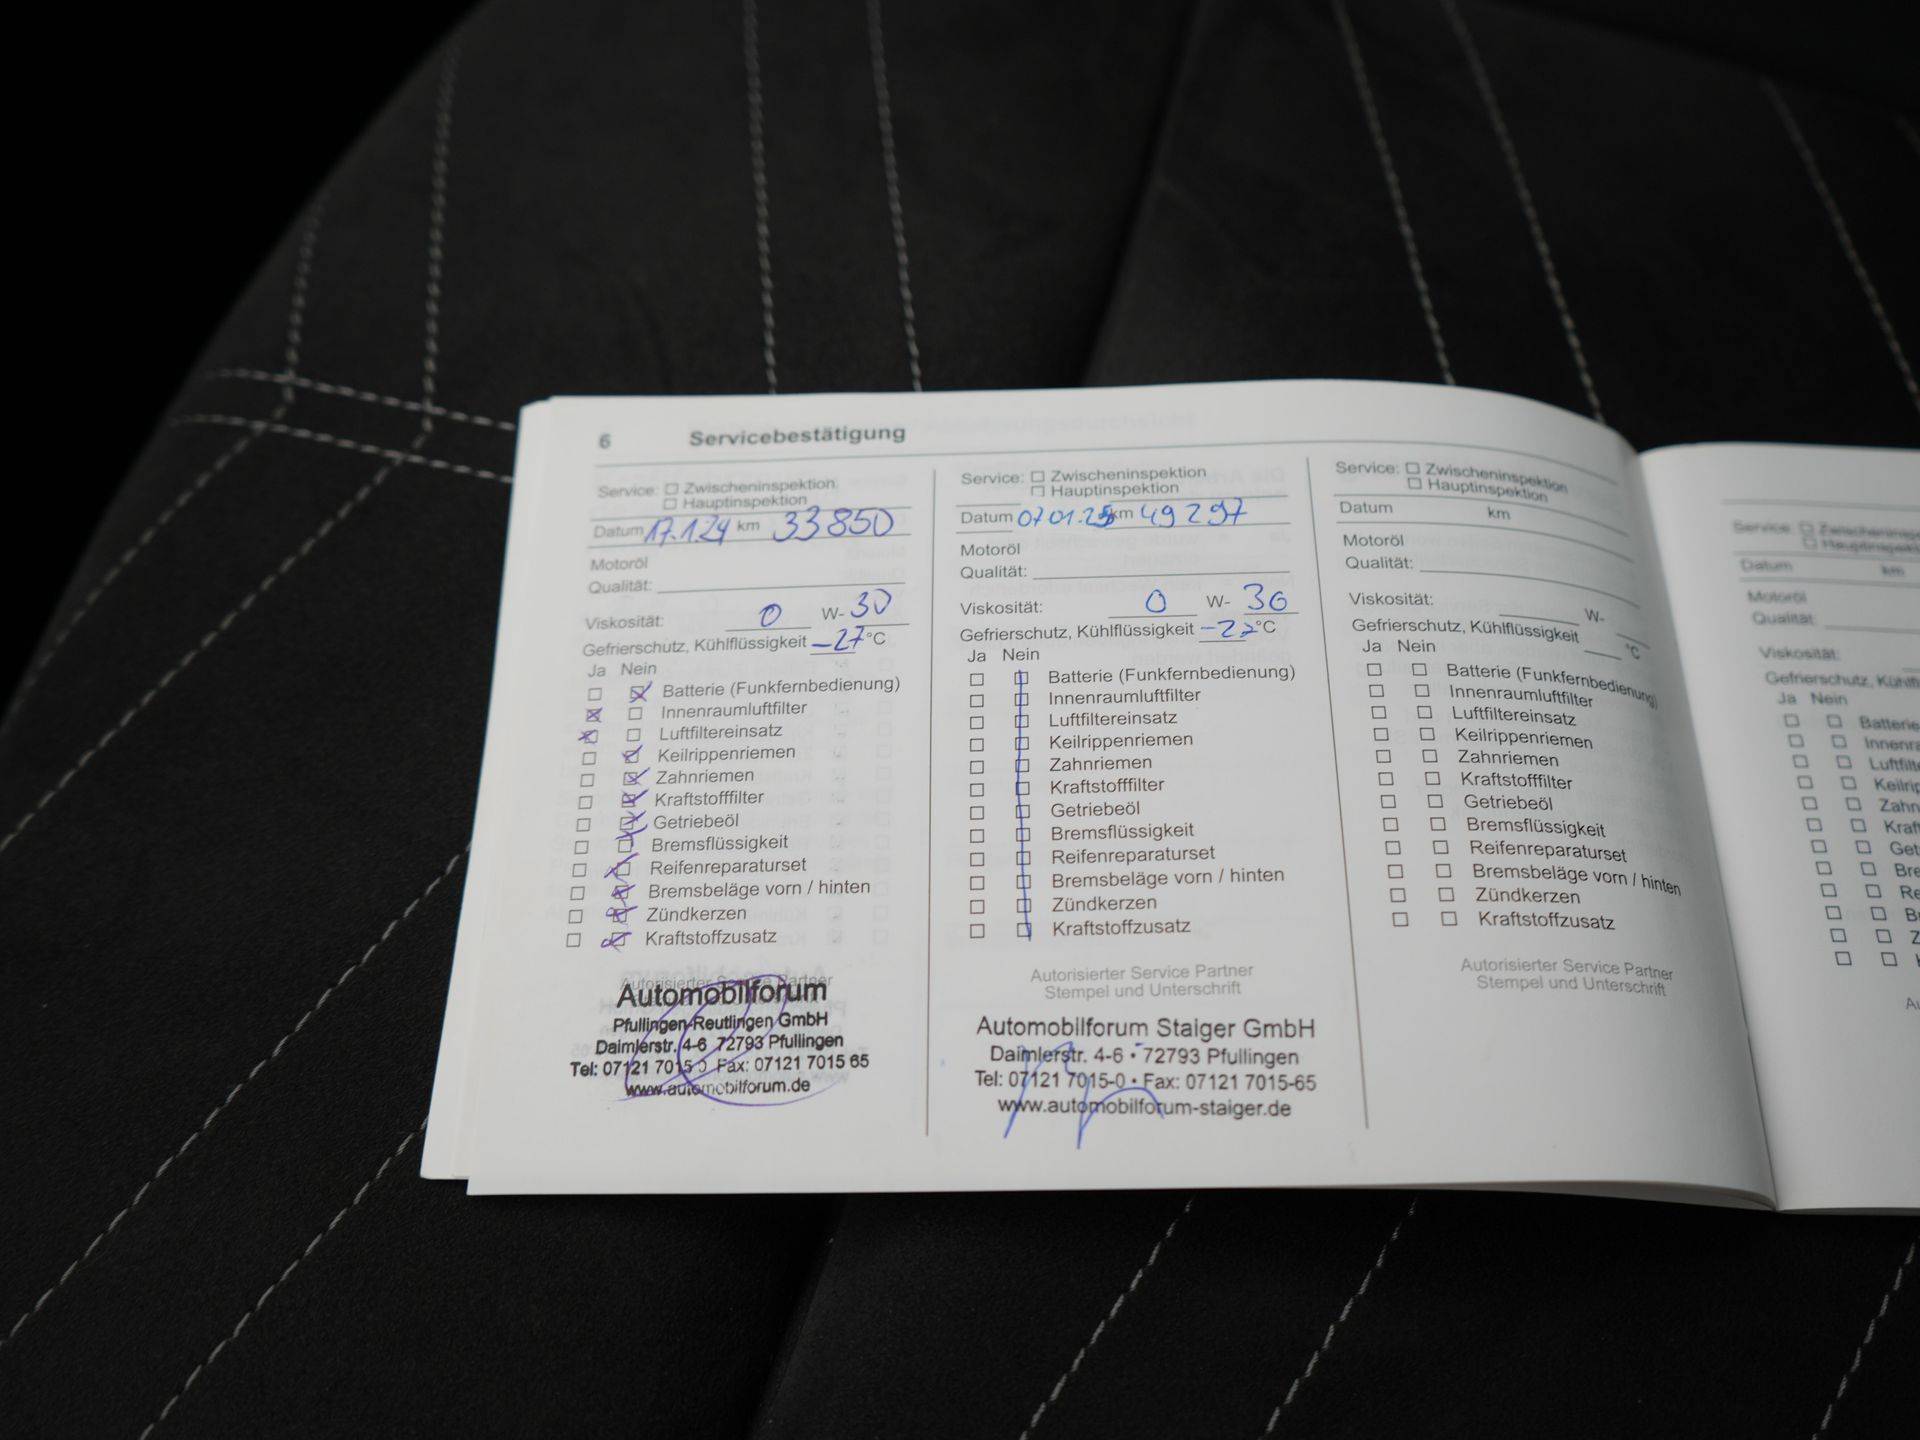 6 Servicebestätigung
Service: Zwischeninspektion
Hauptinspektion
Datum 17.1.24 km 33850
Motoröl
Qualität:
Viskosität: 0 W- 30
Gefrierschutz, Kühlflüssigkeit -27 °C
Ja Nein
Batterie (Funkfernbedienung)
Innenraumluftfilter
Luftfiltereinsatz
Keilrippenriemen
Zahnriemen
Kraftstofffilter
Getriebeöl
Bremsflüssigkeit
Reifenreparaturset
Bremsbeläge vorn / hinten
Zündkerzen
Kraftstoffzusatz
Autorisierter Service Partner
Automobilforum
Pfullingen-Reutlingen GmbH
Daimlerstr. 4-6 72793 Pfullingen
Tel: 07121 7015-0 Fax: 07121 7015 65
www.automobilforum.de
Service: Zwischeninspektion
Hauptinspektion
Datum 07.01.25 km 49297
Motoröl
Qualität:
Viskosität: 0 W- 30
Gefrierschutz, Kühlflüssigkeit °C
Ja Nein
Batterie (Funkfernbedienung)
Innenraumluftfilter
Luftfiltereinsatz
Keilrippenriemen
Zahnriemen
Kraftstofffilter
Getriebeöl
Bremsflüssigkeit
Reifenreparaturset
Bremsbeläge vorn / hinten
Zündkerzen
Kraftstoffzusatz
Autorisierter Service Partner
Stempel und Unterschrift
Automobilforum Staiger GmbH
Daimlerstr. 4-6 • 72793 Pfullingen
Tel: 07121 7015-0 • Fax: 07121 7015-65
www.automobilforum-staiger.de
Service: Zwischeninspektion
Hauptinspektion
Datum km
Motoröl
Qualität:
Viskosität: W-
Gefrierschutz, Kühlflüssigkeit °C
Ja Nein
Batterie (Funkfernbedienung)
Innenraumluftfilter
Luftfiltereinsatz
Keilrippenriemen
Zahnriemen
Kraftstofffilter
Getriebeöl
Bremsflüssigkeit
Reifenreparaturset
Bremsbeläge vorn / hinten
Zündkerzen
Kraftstoffzusatz
Autorisierter Service Partner
Stempel und Unterschrift
Service:
Datum km
Motoröl
Qualität:
Viskosität:
Gefrierschutz,
Ja Nein